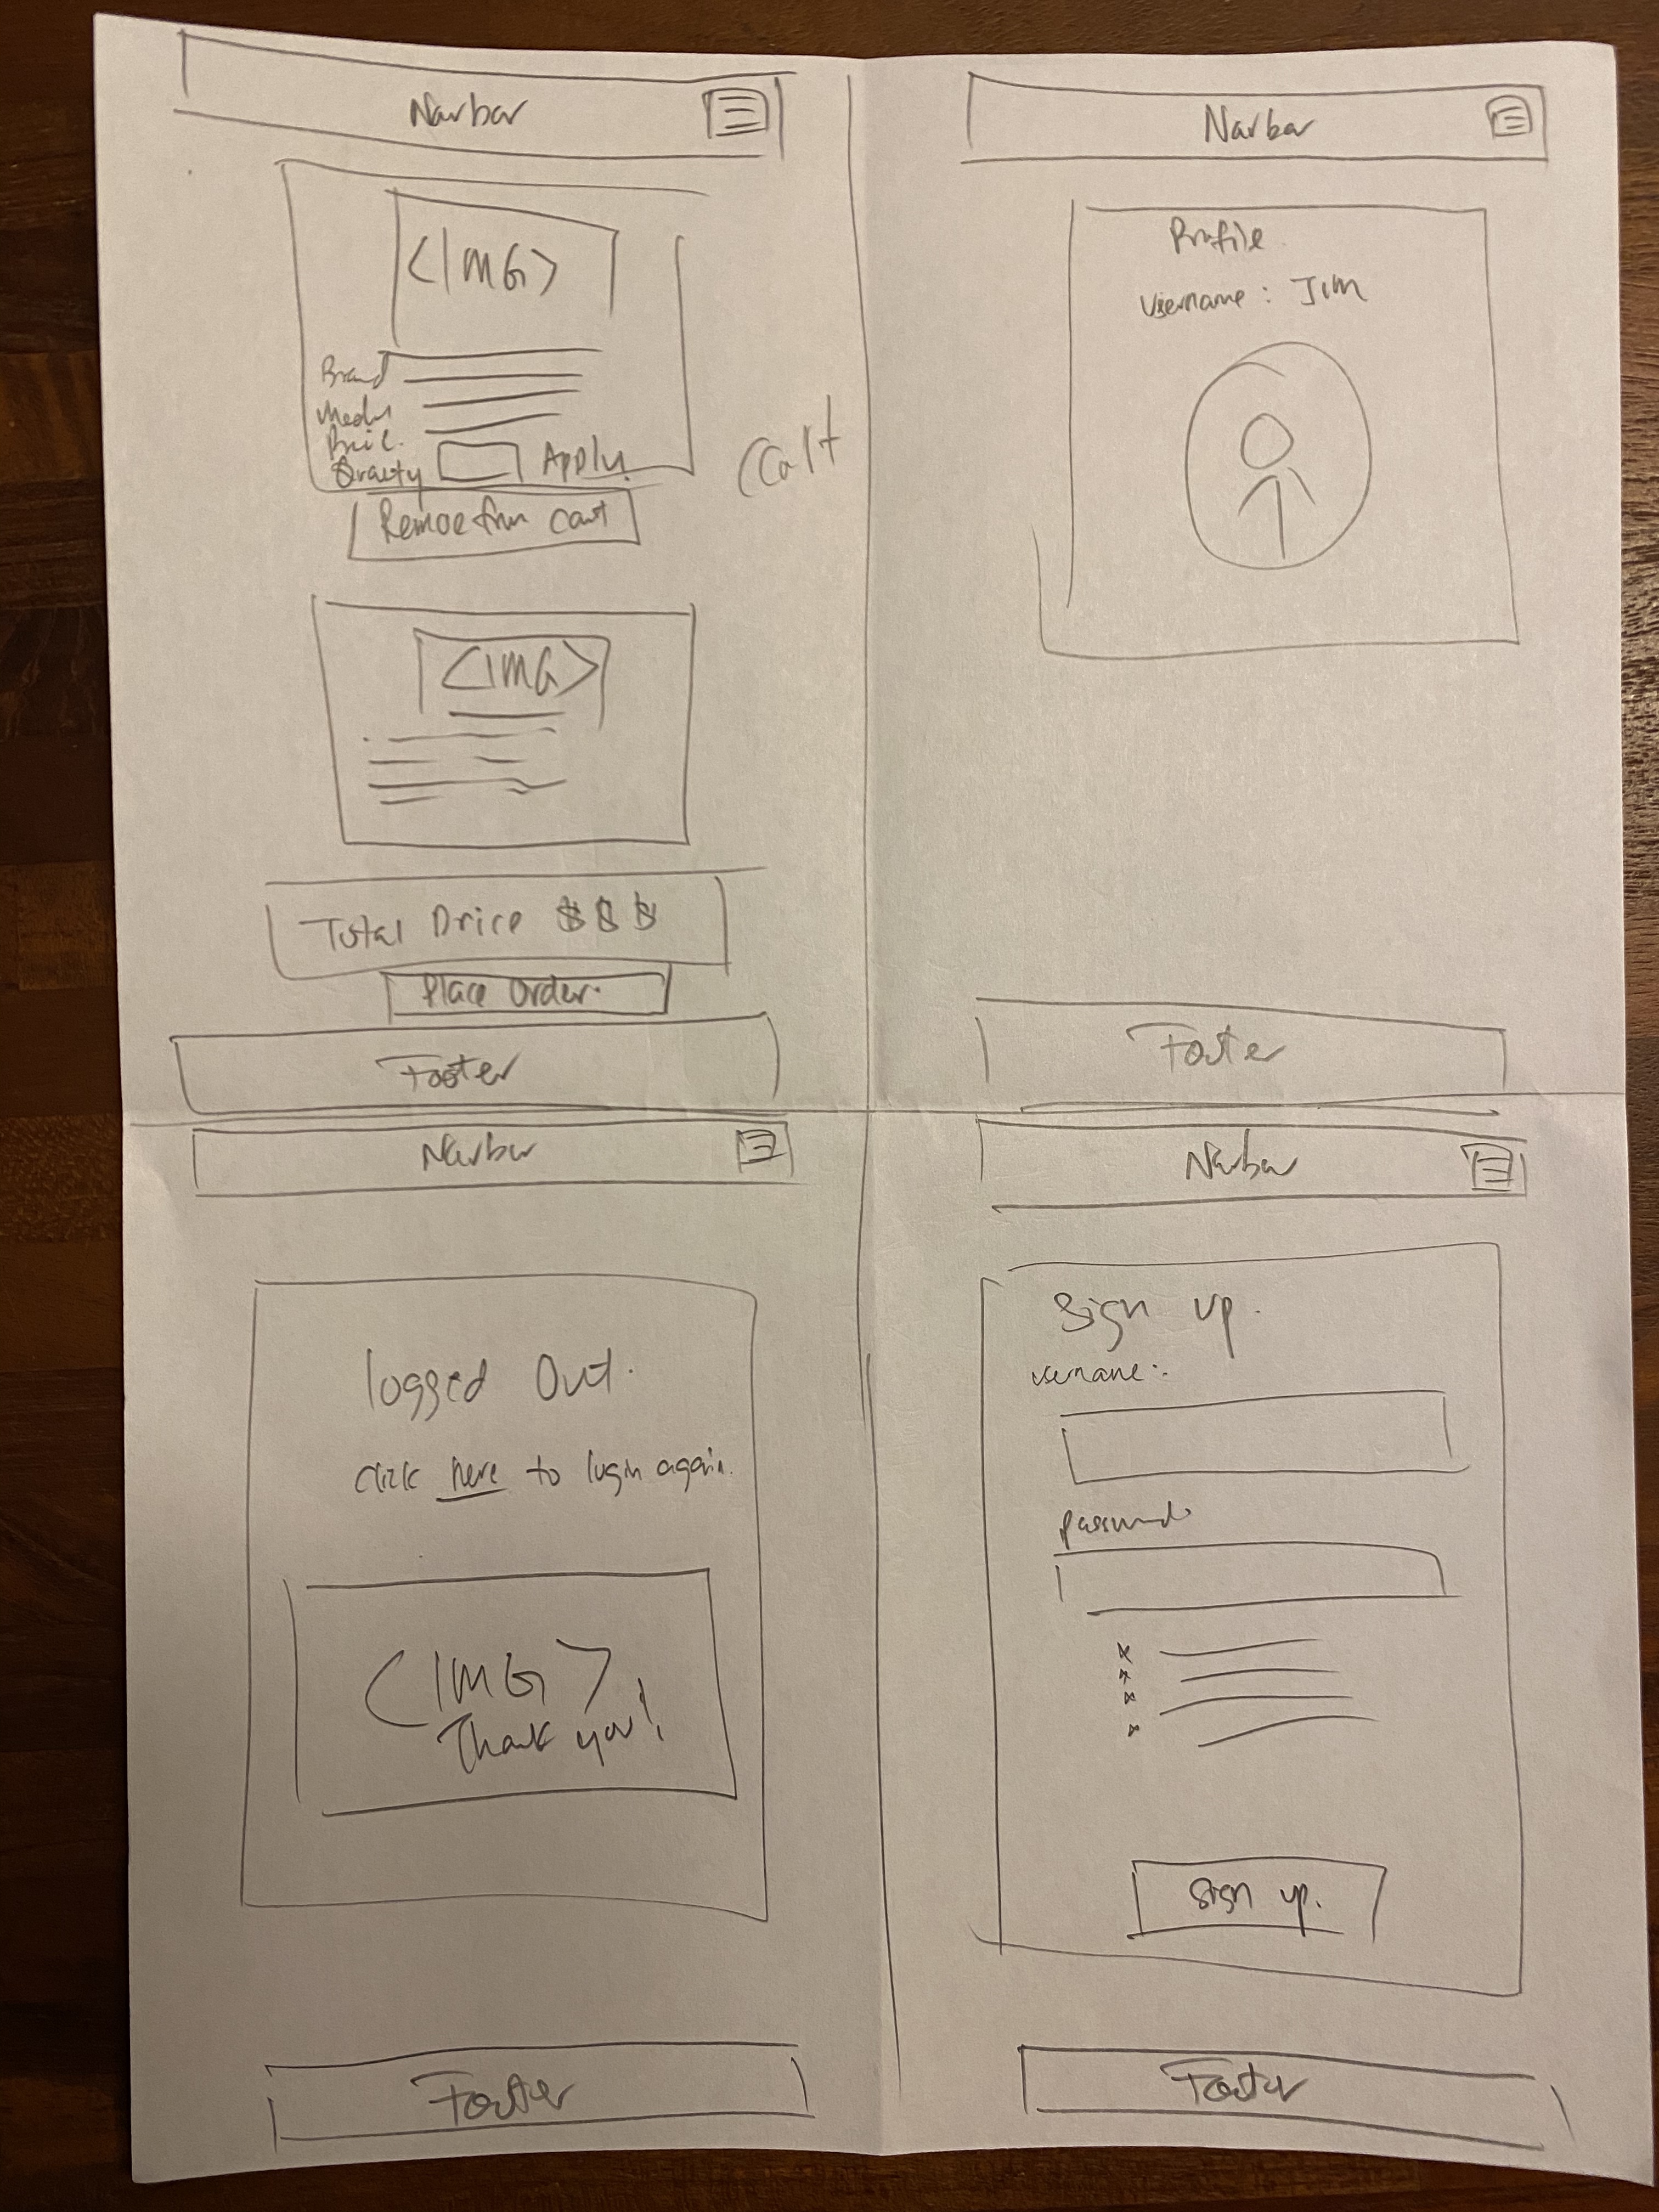 Navbar
<IMG>
Brand
Model
Price
Quantity Apply
Remoe from cart
Cart
<IMG>
Total Price $ $ $
Place Order.
Footer
Navbar
Profile
Username: Jim
Footer
Navbar
logged Out.
click here to login again.
<IMG>
Thank you!
Footer
Navbar
Sign up.
username:
password
Sign up.
Footer